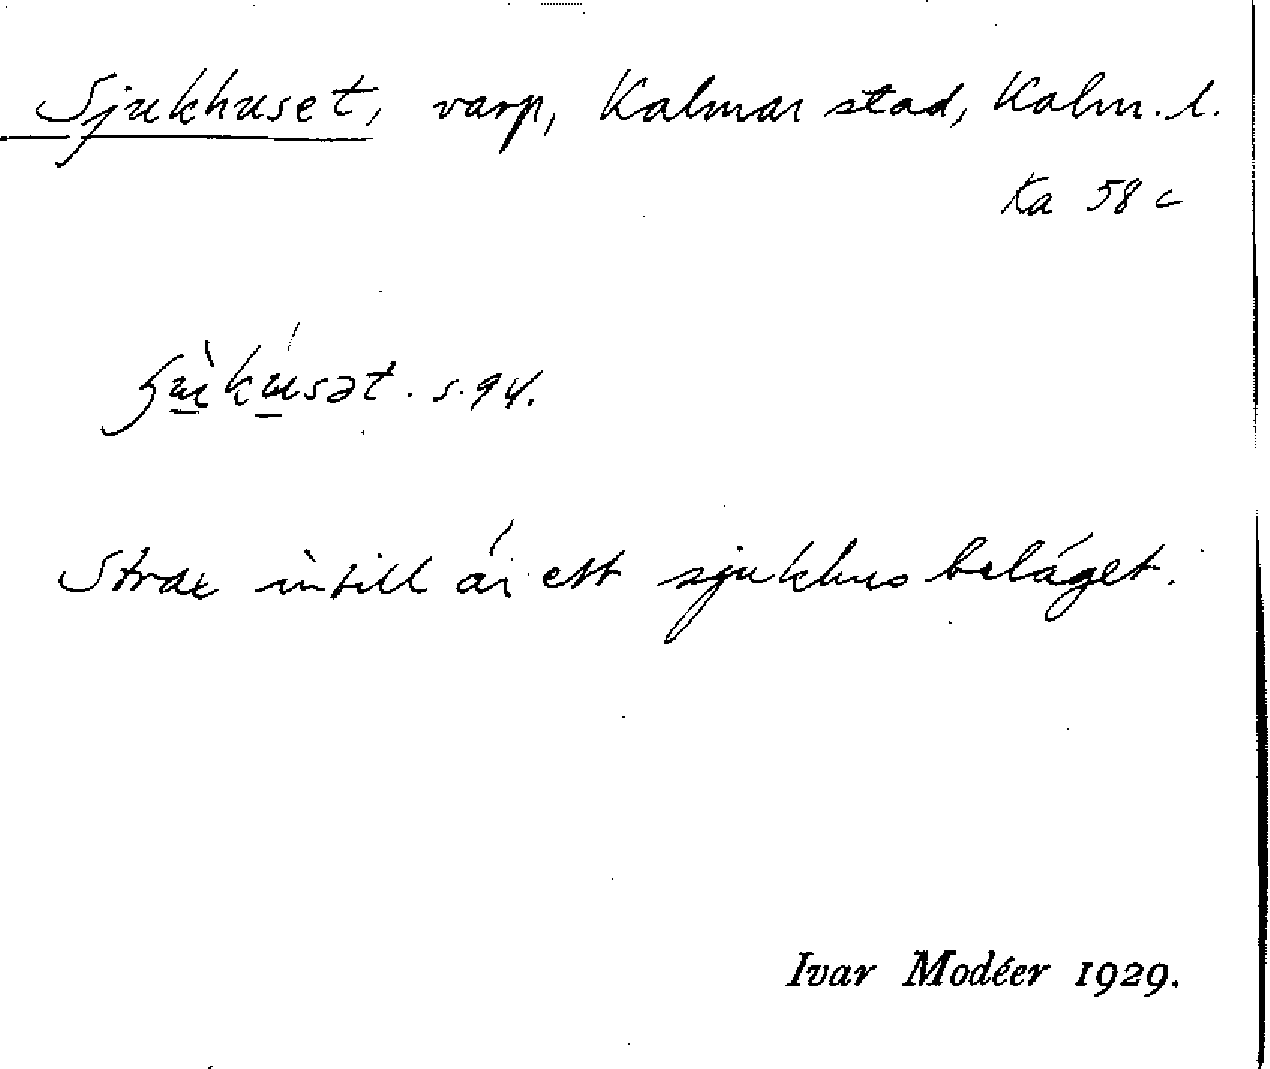 Sjukhuset, varp, Kalmar stad, Kalm. l.
Ka 58 c
s. 94.
Strax intill är ett sjukhus beläget.
Ivar Modéer 1929.